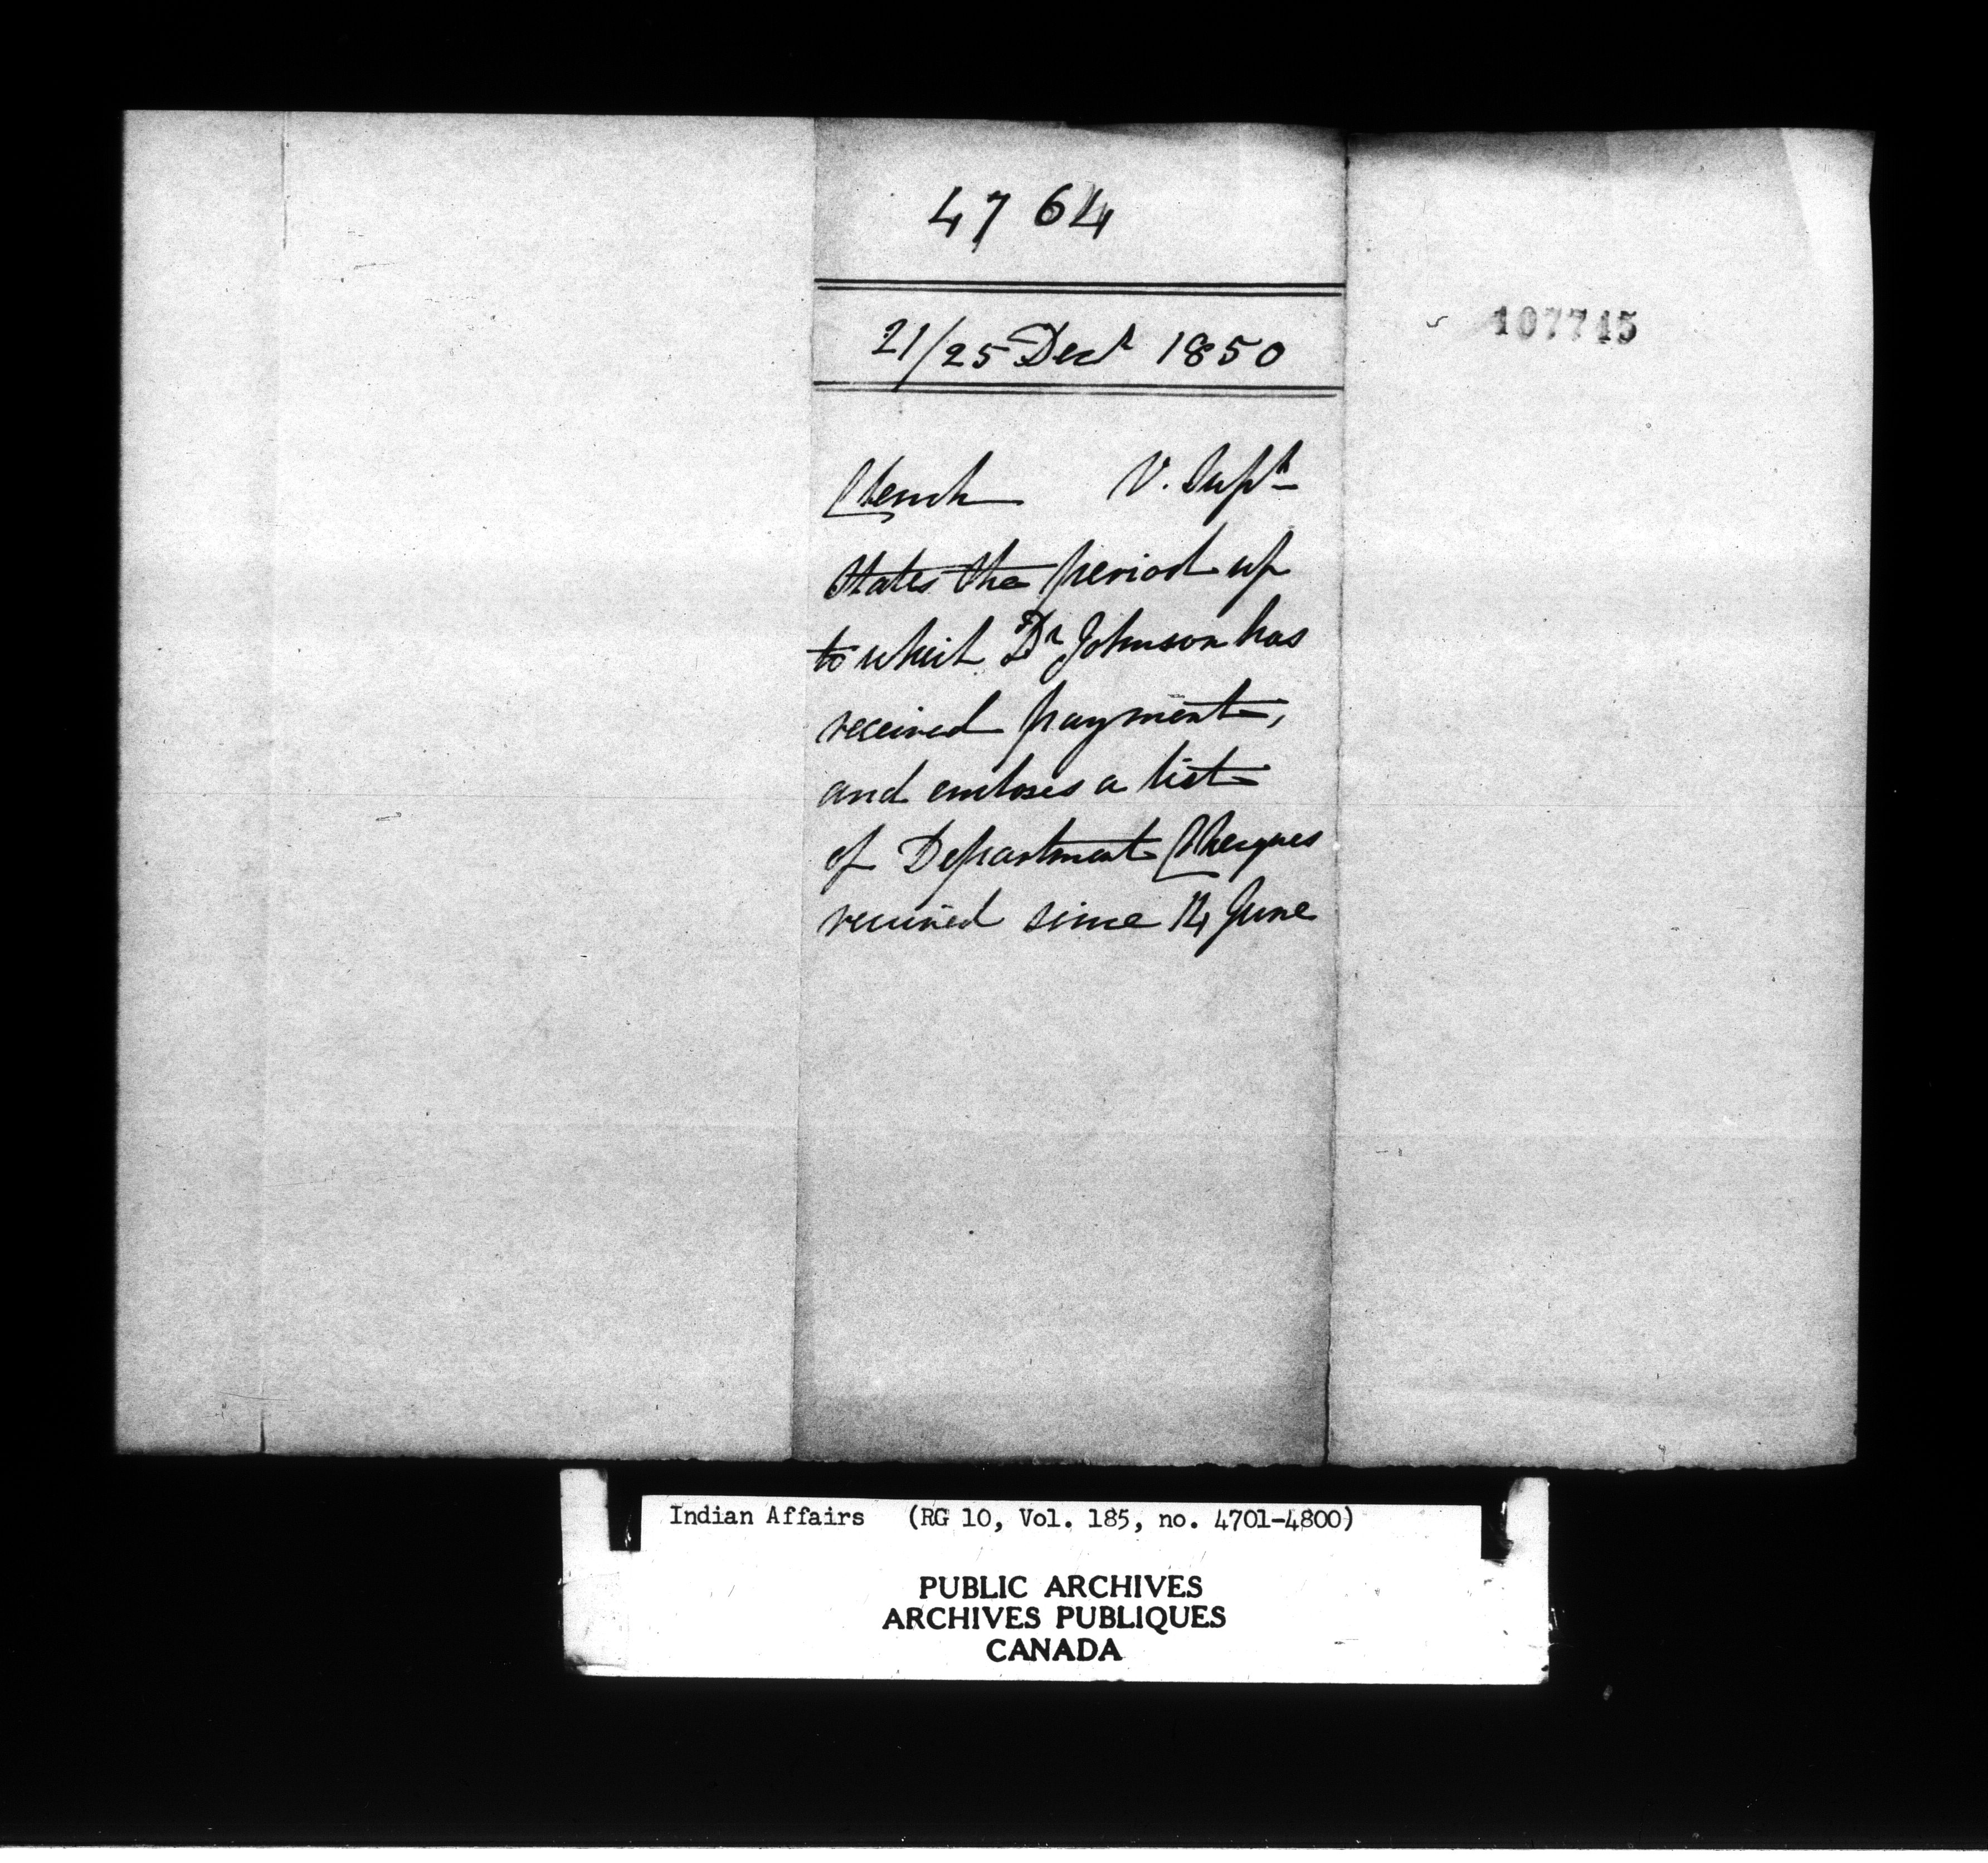 4764
21/25 Decr 1850
107715
Clench V. Supt
States the period up
to which Dr Johnson has
received payment,
and encloses a list
of Department Cheques
received since 14 June
Indian Affairs (RG 10, Vol. 185, no. 4701-4800)
PUBLIC ARCHIVES
ARCHIVES PUBLIQUES
CANADA